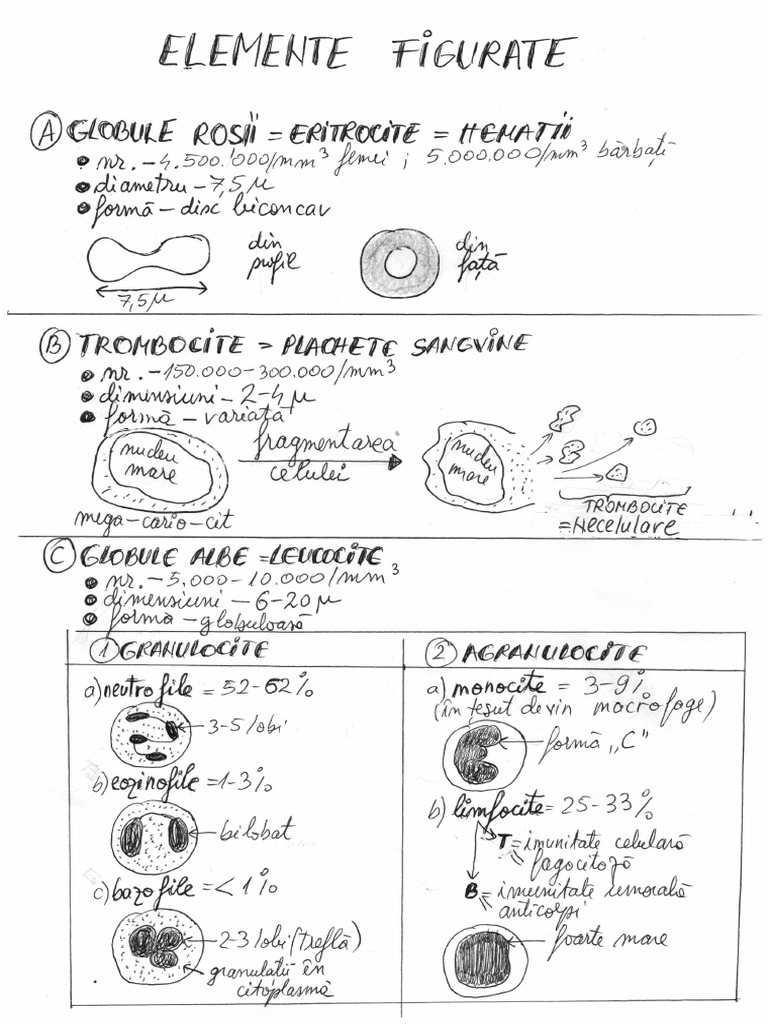 ELEMENTE FIGURATE
A GLOBULE ROSII = ERITROCITE = HEMATII
• nr. – 4.500.000/mm³ femei ; 5.000.000/mm³ bărbați
• diametru – 7,5 μ
• formă – disc biconcav
din profil
7,5 μ
din față
B TROMBOCITE = PLACHETE SANGVINE
• nr. – 150.000 – 300.000/mm³
• dimensiuni – 2-4 μ
• formă – variată
nucleu mare
fragmentarea celulei
nucleu mare
mega-cario-cit
TROMBOCITE
= Necelulare
C GLOBULE ALBE = LEUCOCITE
• nr. – 5.000 – 10.000/mm³
• dimensiuni – 6-20 μ
• formă – globuloasă
1 GRANULOCITE
a) neutrofile = 52-62%
3-5 lobi
b) eozinofile = 1-3%
bilobat
c) bazofile = < 1%
2-3 lobi (treflă)
granulații în
citoplasmă
2 AGRANULOCITE
a) monocite = 3-9%
(în țesut devin macrofage)
formă „C"
b) limfocite = 25-33%
T = imunitate celulară
fagocitoză
B = imunitate umorală
anticorpi
foarte mare